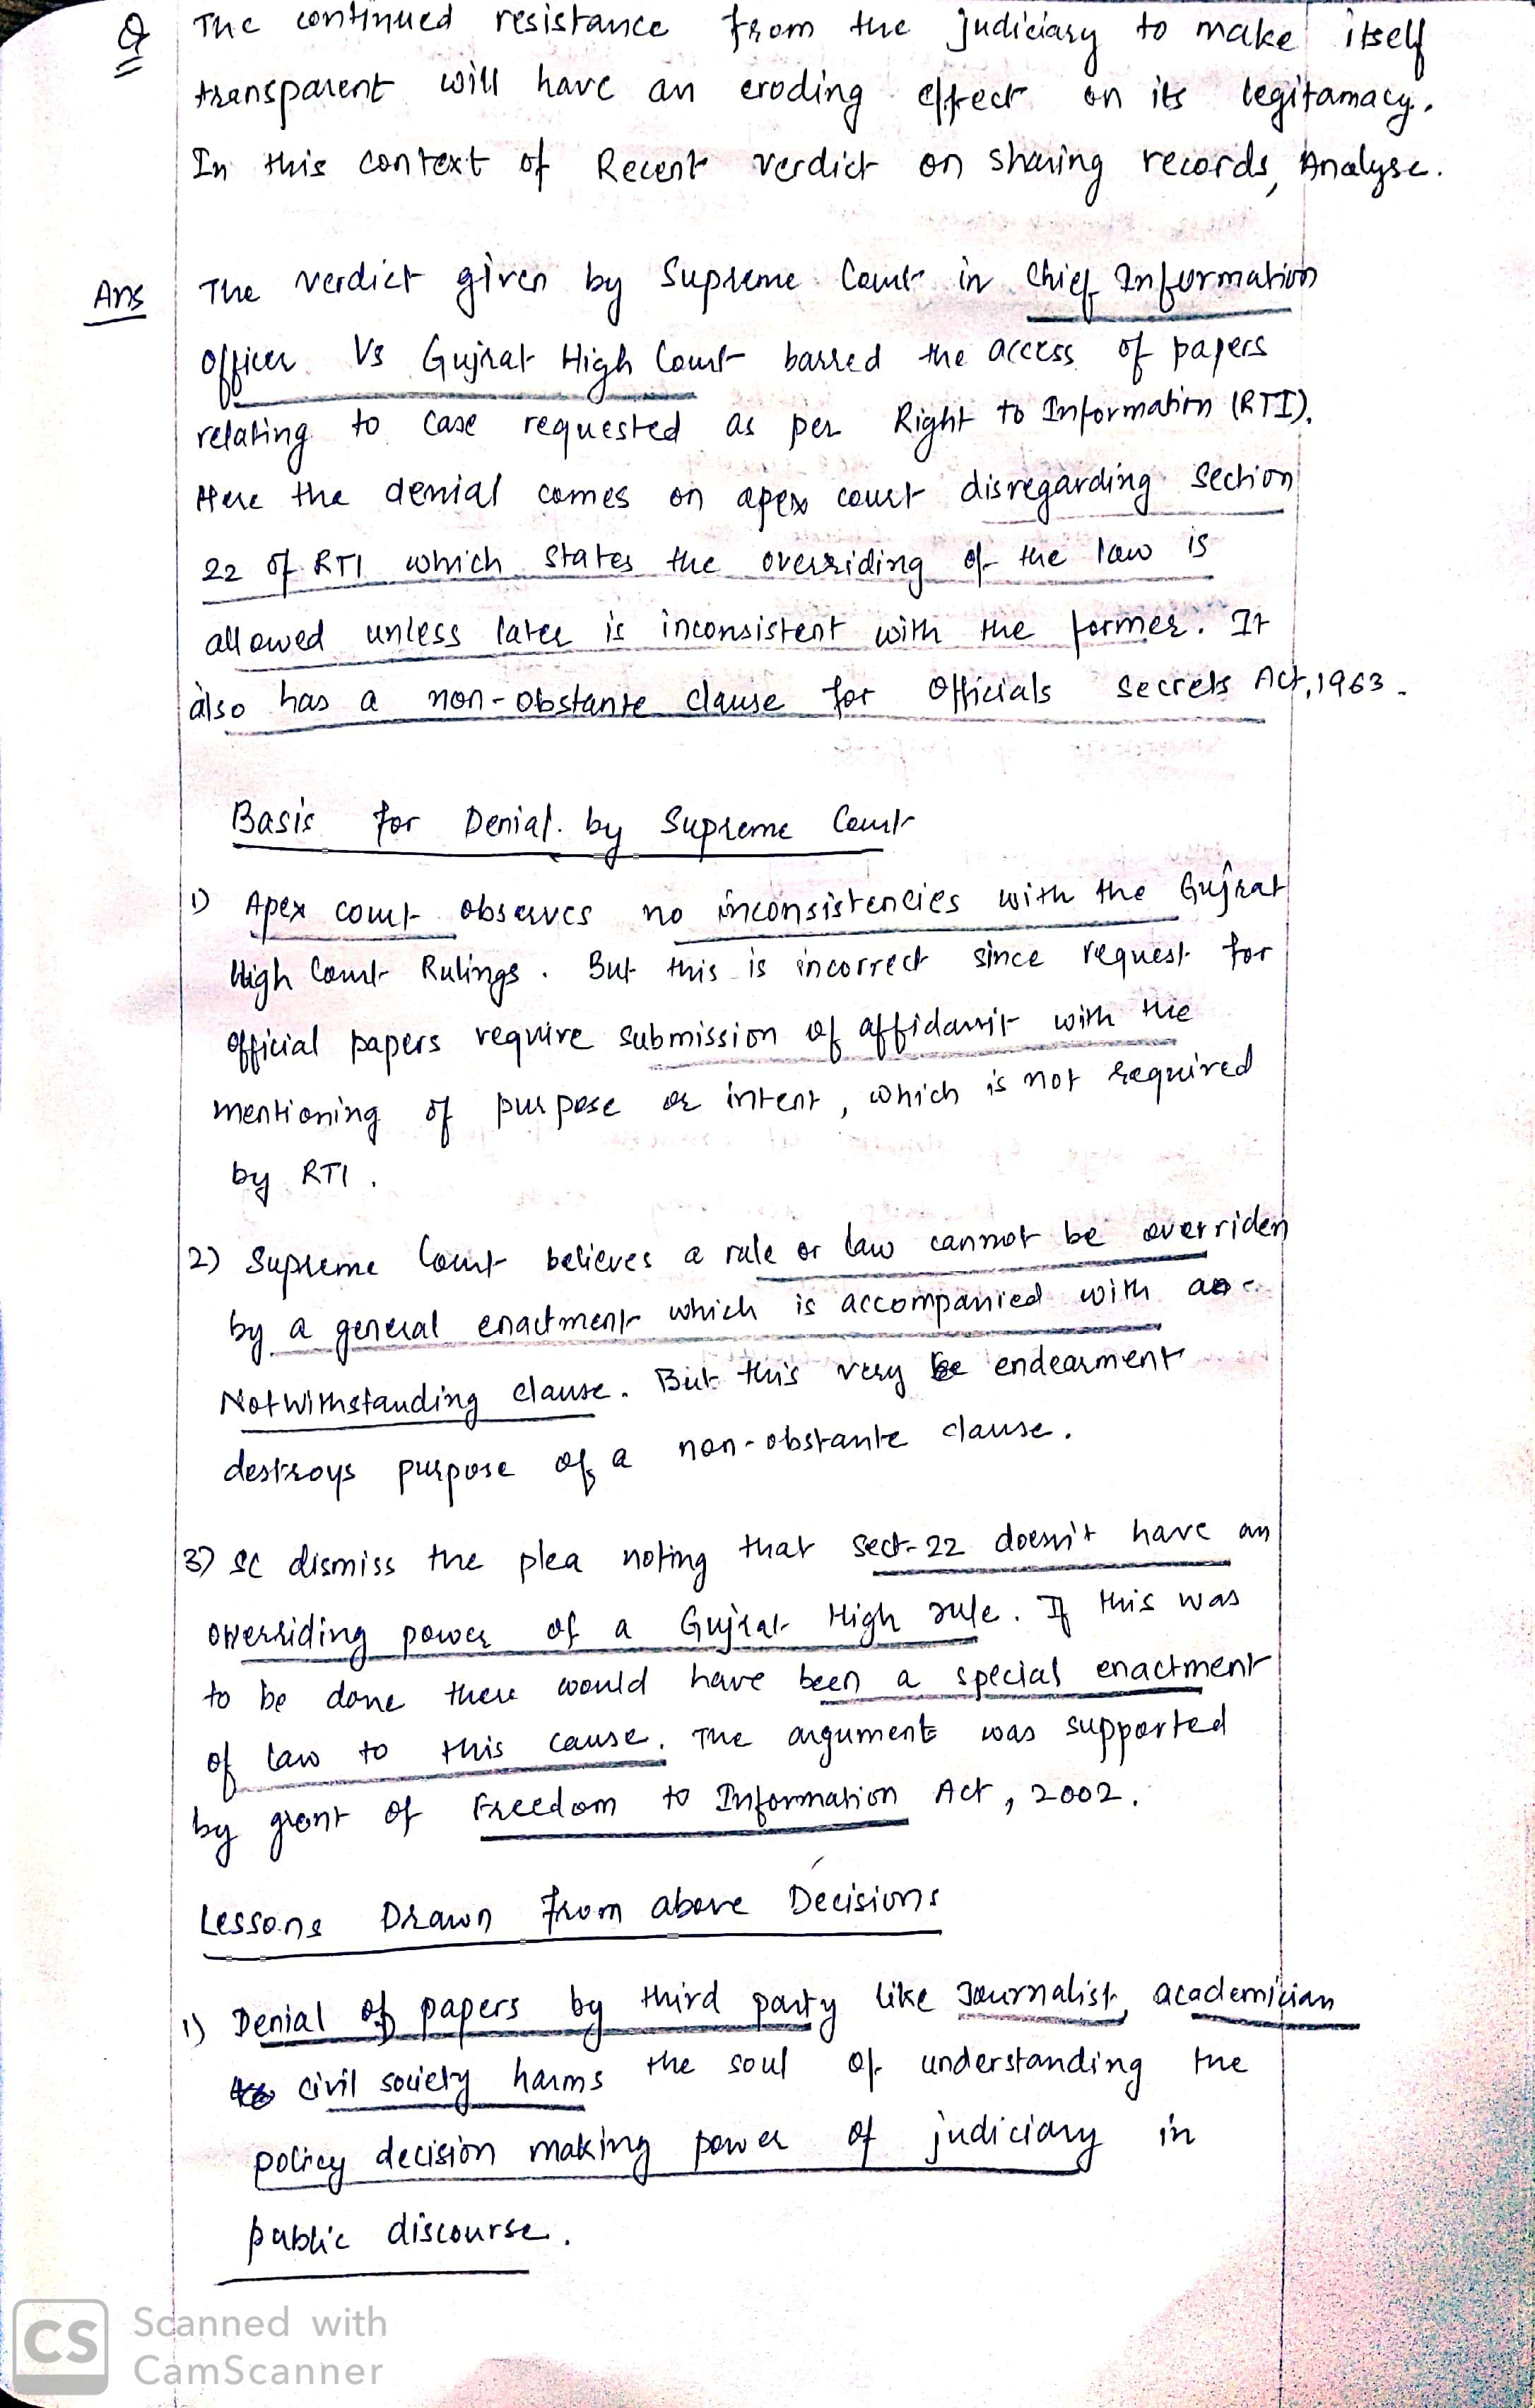 Q The continued resistance from the judiciary to make itself
transparent will have an eroding effect on its legitamacy.
In this context of Recent verdict on sharing records, Analyse.
Ans The verdict given by Supreme Court in Chief Information
Officer Vs Gujrat High Court barred the access of papers
relating to case requested as per Right to Information (RTI).
Here the denial comes on apex court disregarding Section
22 of RTI which states the overriding of the law is
allowed unless later is inconsistent with the former. It
also has a non-obstante clause for Officials Secrets Act, 1963.
Basis for Denial by Supreme Court
1) Apex court observes no inconsistencies with the Gujrat
High Court Rulings. But this is incorrect since request for
official papers require submission of affidavit with the
mentioning of purpose or intent, which is not required
by RTI.
2) Supreme Court believes a rule or law cannot be overriden
by a general enactment which is accompanied with a
Notwithstanding clause. But this very endearment
destroys purpose of a non-obstante clause.
3) SC dismiss the plea noting that sect-22 doesn't have an
overriding power of a Gujrat High rule. If this was
to be done there would have been a special enactment
of law to this cause. The argument was supported
by grant of Freedom to Information Act, 2002.
Lessons Drawn from above Decisions
1) Denial of papers by third party like Journalist, academician
civil society harms the soul of understanding the
policy decision making power of judiciary in
public discourse.
CS Scanned with
CamScanner